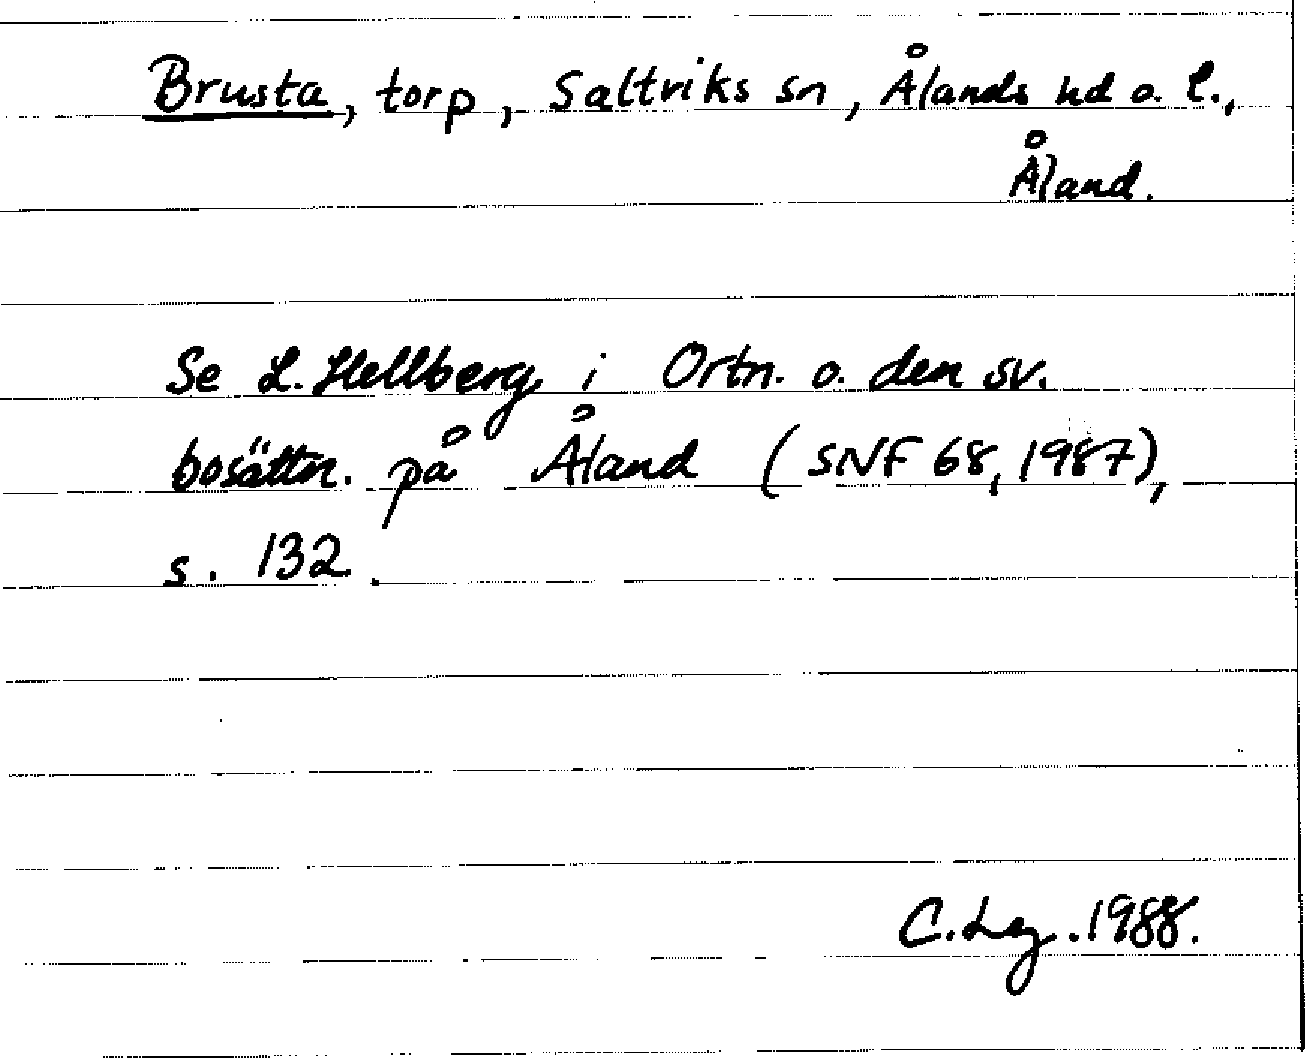 Brusta, torp, Saltviks sn, Ålands hd o. l.,
Åland.
Se L. Hellberg i Ortn. o. den sv.
bosättn. på Åland (SNF 68, 1987),
s. 132.
C. 1988.